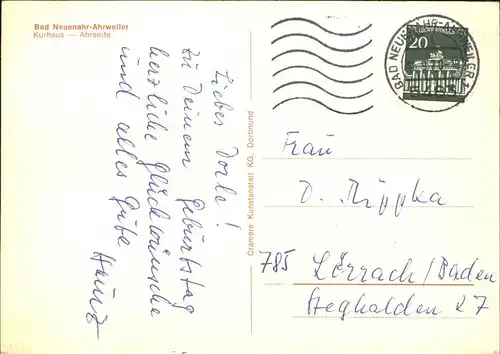 Bad Neuenahr-Ahrweiler
Kurhaus — Ahrseite
Liebes Dorle!
Zu Deinem Geburtstag
herzliche Glückwünsche
und alles Gute
Heinz
Cramers Kunstanstalt KG, Dortmund
BAD NEUENAHR-AHRWEILER 1
20
Frau
D. Rippka
785 Lörrach/Baden
Steghalden 27